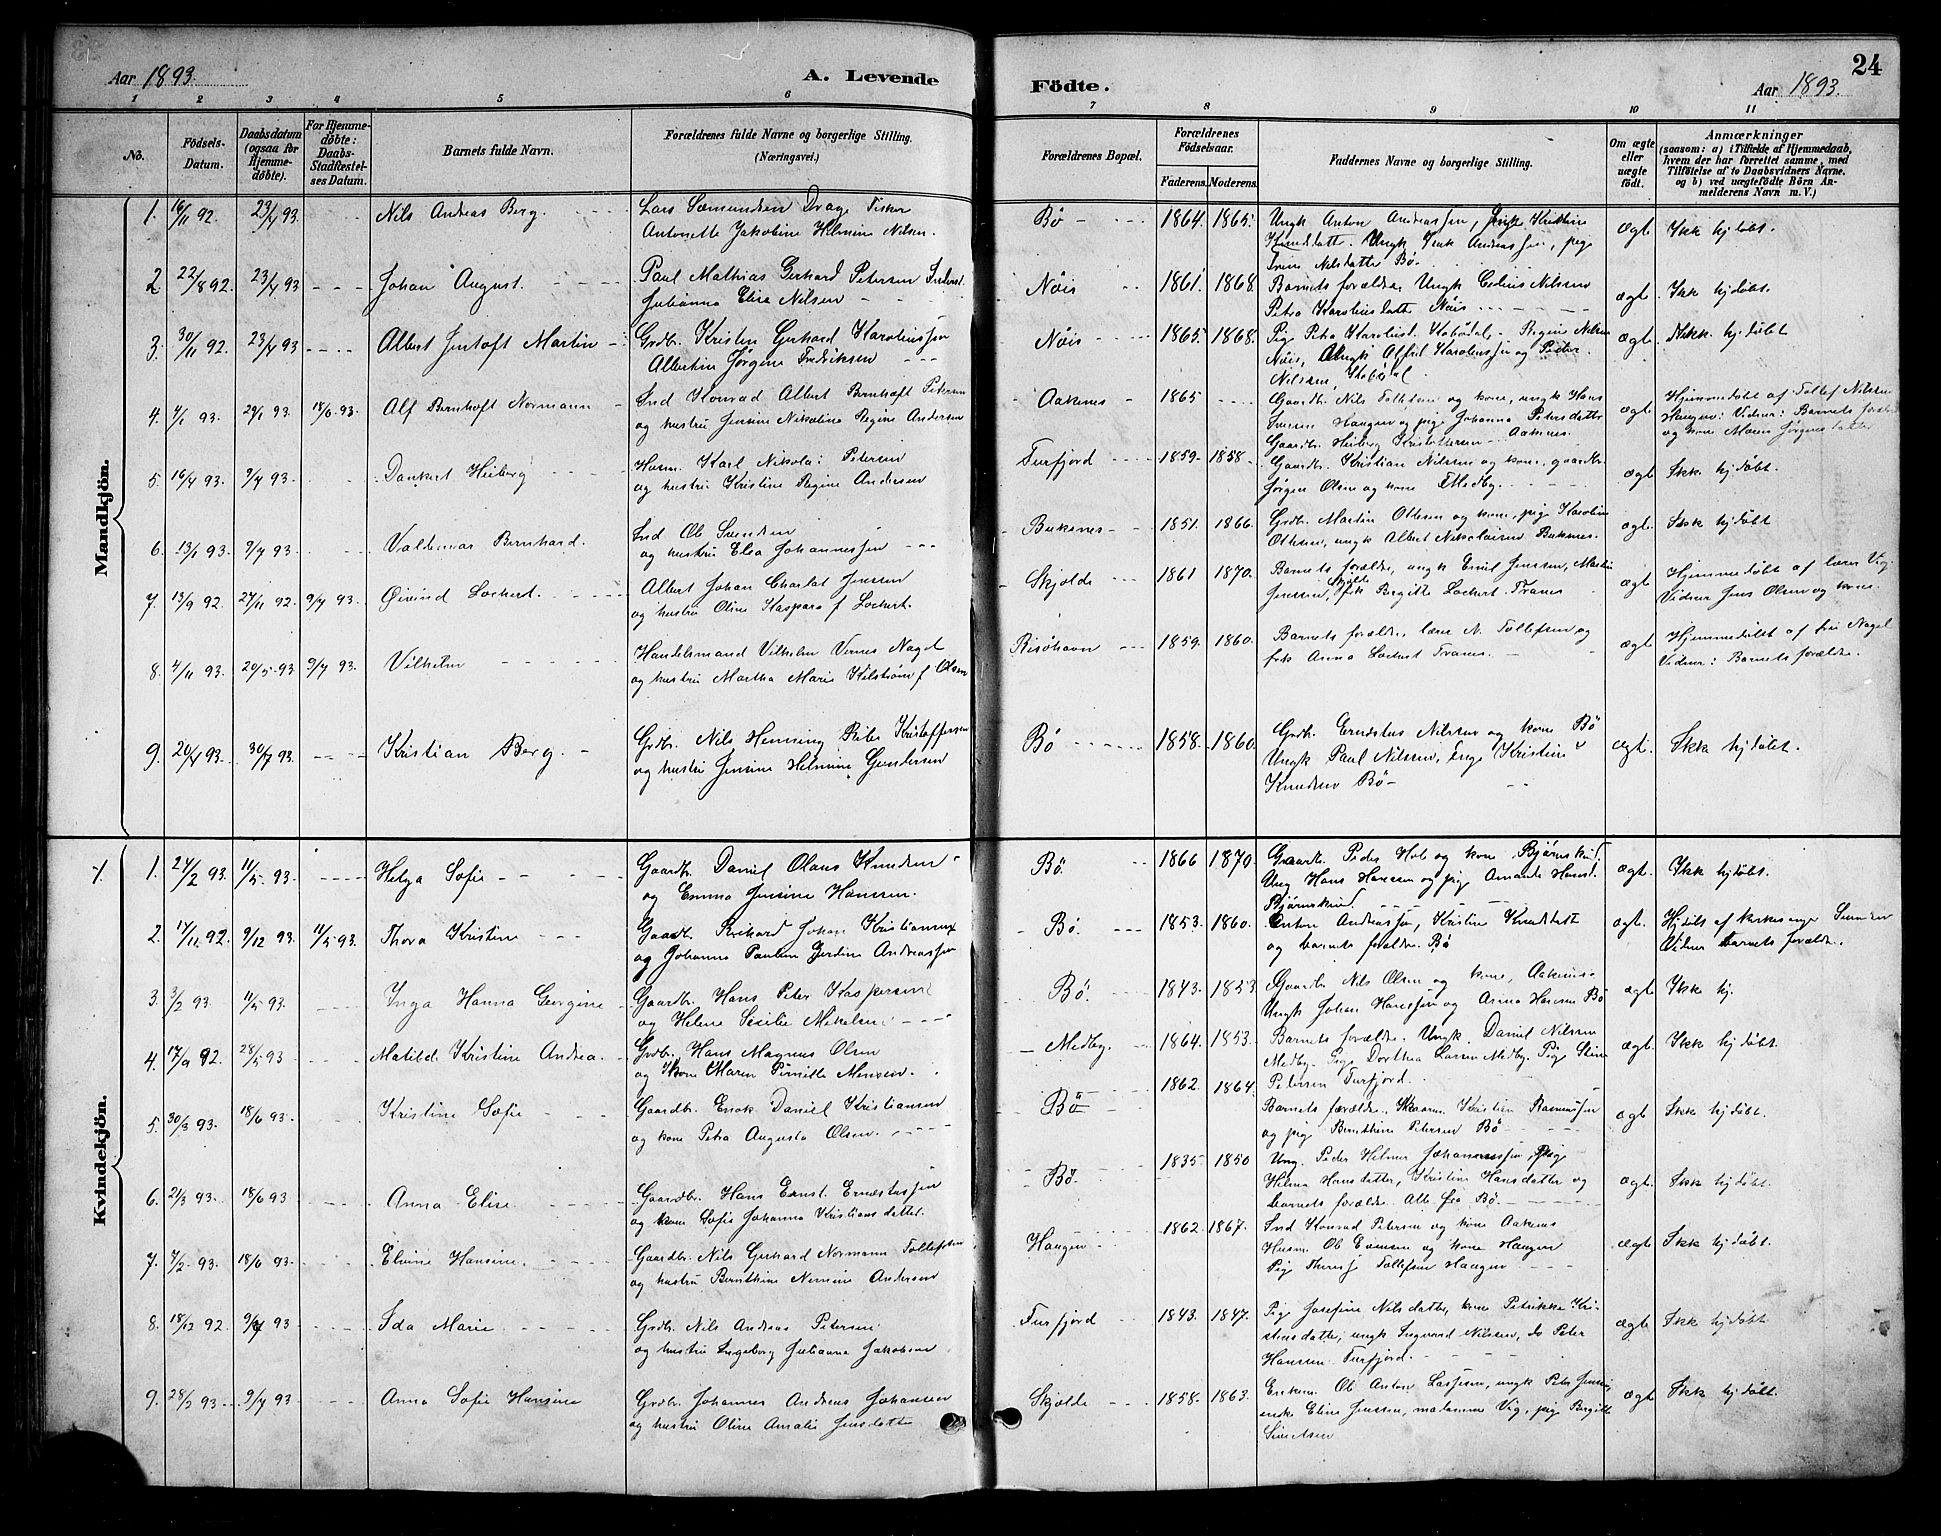 Aar 1893.
A. Levende
Födte.
Aar 1893.
24
1 2 3 4 5 6 7 8 9 10 11
No.
Födsels-Datum.
Daabsdatum (ogsaa for Hjemme-döbte).
For Hjemme-döbte: Daabs-Stadfæstel-ses Datum.
Barnets fulde Navn.
Forældrenes fulde Navne og borgerlige Stilling. (Næringsvei.)
Forældrenes Bopæl.
Forældrenes Födselsaar.
Faderens. Moderens.
Faddernes Navne og borgerlige Stilling.
Om ægte eller uægte födt.
Anmærkninger
(saasom: a) i Tilfælde af Hjemmedaab, hvem der har forrettet samme, med Tilföielse af to Daabsvidners Navne. og b) ved uægtefödte Börn An-melderens Navn m. V.)
Mandkjön.
1. 16/11 92. 23/4 93 Nils Andreas Berg.
Lars Sæmundsen Drage Fisker
Antonette Jakobine Helmine Nilsen.
Bø 1864. 1865.
Ungk Anton Andreassen, Pige Kristine
Knudsdatter. Ungk Isak Andreassen, pige
Trine Nilsdatter Bø.
ægt. Ikk hjdøbt.
2 22/8 92. 23/4 93 Johan August.
Paul Mathias Gerhard Petersen Inderst
Julianna Elise Nilsen
Nöis 1861. 1868.
Barnets forældre Ungk Edius Nilsen
Petra Karoliusdatter Nöis
ægt. Ikk hjdøbt.
3. 30/11 92. 23/4 93 Albert Jentoft Martin
Grdbr. Kristen Gerhard Karoliussen
Albertine Jørgine Fredriksen
Nöis 1865. 1868.
Nöis, Ungk Alfred Karoliussen og Peder
Nilssen,
ægt. Ikk. hjdøbt
4. 4/1 93. 29/1 93. 18/6 93. Alf Bernhoft Normann
Ind Konrad Albert Bernhoft Petersen
og hustru Jensine Nikoline Regine Andersen
Aaknes 1865
Gaardbr. Nils Tollefsen og kone, ungk Hans
Jensen Haugen og pige Johanna Petersdatter
Gaardbr. Heiberg Kristoffersen Aaknes.
ægt
Hjemmedøbt af Tollef Nilsen
Haugen: Vidner: Barnets forældre
og kone Maren Jørgensdatter
5. 16/4 93. 9/7 93. Dankert Heiberg
Husm. Karl Nikolai Petersen
og hustru Kristine Regine Andersen
Furfjord 1859. 1858.
Gaardbr. Kristian Nilsen og kone, gaardbr.
Jørgen Olsen og kone Medby.
ægt Ikk hjdøbt.
6. 13/1 93. 9/7 93. Valdemar Bernhard.
Ind Ole Svendsen
og hustru Elea Johannessen
Buksnes 1851. 1866.
Grdbr. Martin Othesen og kone, pige Karoline
Othesen, ungk Albert Nikolaisen Buksnes.
ægt. Ikk hjdøbt
7. 13/9 92. 27/11 92. 9/7 93. Øivind Lockert.
Albert Johan Charlot Jenssen
og hustru Oline Kaspara f Lockert.
Skjolde 1861 1870.
Barnets forældre, ungk Emil Jenssen, Martin
Jenssen, Skjolde frk Birgitte Lockert Tranes
ægt
Hjemmedøbt af lærer Vig
Vidner Jens Olsen og kone.
8. 4/11 93. 20/5 93 9/7 93. Vilhelm
Handelsmand Vilhelm Vernes Nagel
og hustru Martha Marie Kilstrøm f Olsen
Risøhavn 1859. 1860.
Barnets forældre, lærer N. Tollefsen og
frk Anna Lockert Tranes.
ægt
Hjemmedøbt af fru Nagel
Vidner: Barnets forældre.
9. 20/4 93. 30/7 93. Kristian Berg.
Grdbr. Nils Henning Ribe Kristoffersen
og hustru Jensine Helmine Gundersen
Bø 1858. 1860.
Grdbr. Ernestus Nilssen og kone Bø
Ungk Paul Nilssen, Enge Kristine
Knudsen Bø
ægt. Ikk hjdøbt.
Kvindekjön.
1. 24/2 93. 11/5 93. Helga Sofie
Gaardbr. Daniel Olaus Knudsen
og Emma Jensine Hansen.
Bø. 1866 1870.
Gaardb. Peder Hol og kone Bjørnskind,
Ung Hans Hanssen og pige Amanda Hans.
Bjørnskind
ægt. Ikk hjdøbt.
2. 17/11 92. 9/12 93. 11/5 93. Thora Kristine
Gaardb. Richard Johan Kristiansen
og Johanna Pauline Jerdine Andreassen
Bø. 1853. 1860.
Anton Andreassen, Kristine Knudsdatt
og barnets forældre. Bø
ægt.
Hjdøbt af kirkesanger Svensen
Vidner Barnets forældre.
3. 3/2 93. 11/5 93. Inga Hanna Georgine
Gaardbr. Hans Peter Kaspersen
og Helene Sesilie Mikelsen
Bø. 1843. 1853
Gaardbr Nils Olsen og kone, Aaknes.
Ungk Johan Hanssen og Anna Hansen Bø
ægt Ikk hj.
4. 17/9 92. 28/5 93 Matild. Kristine Andrea.
Grdbr. Hans Magnus Olsen
og Kone Maren Pernille Mensen.
Medby. 1864. 1853.
Barnets forældre. Ungk. Daniel Nilssen
Medby. Pige Dorthea Larsen Medby. Pige Stine
Petersen Furfjord.
ægt. Ikk hjdøbt.
5. 30/3 93. 18/6 93. Kristine Sofie
Gaardbr. Enok Daniel Kristiansen
og kone Petra Augusta Olsen.
Bø 1862. 1864.
Barnets forældre. Kristen Rasmussen
og pige Bernthine Petersen Bø
ægt Ikk hjdøbt.
6. 21/3 93. 18/6 93 Anna Elise
Gaardbr. Hans Ernst. Ernestussen
og kone Sofie Johanna Kristiansdatter.
Bø. 1835. 1850
Ung. Peder Helmer Johannessen, Pige
Helma Hansdatter, Kristine Hansdatter og
barnets forældre. Alle fra Bø.
ægt. Ikk hjdøbt.
7. 7/2 93. 18/6 93. Elvine Hansine.
Gaardbr. Nils Gerhard Normann Tollefsen
og hustru Bernthine Nimine Andersen
Haugen 1862. 1867.
Ind Konrad Petersen og kone Aaknes
Husm. Ole Ensen og kone Haugen
Pige Therese Tollefsen Haugen
ægt Ikk hjdøbt.
8. 18/12 92. 9/7 93 Ida Marie
Grdbr. Nils Andreas Petersen.
og hustru Ingeborg Julianna Jakobsen
Furfjord 1843. 1847.
Pige Josefine Nilsdatter, kone Petrikke Kri-
stensdatter, ungk Sigvard Nilssen, do Peter
Hanssen Furfjord.
ægt Ikk hjdøbt.
9. 28/2 93. 9/7 93 Anna Sofie Hansine
Grdbr. Johannes Andreas Johansen
og hustru Oline Amalie Jensdatter
Skjolde 1858. 1863.
Enkem. Ole Anton Lassesen, ungk Peter Jensen,
enke Eline Jenssen, madamme Vig, pige Birgitte
Sivertsen
ægt Ikk hjdøbt.